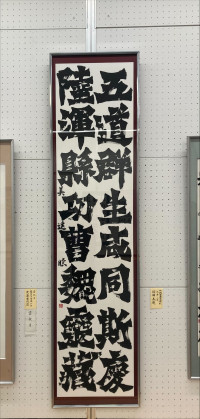 五道群生咸同斯慶
陸渾縣功曹魏靈藏